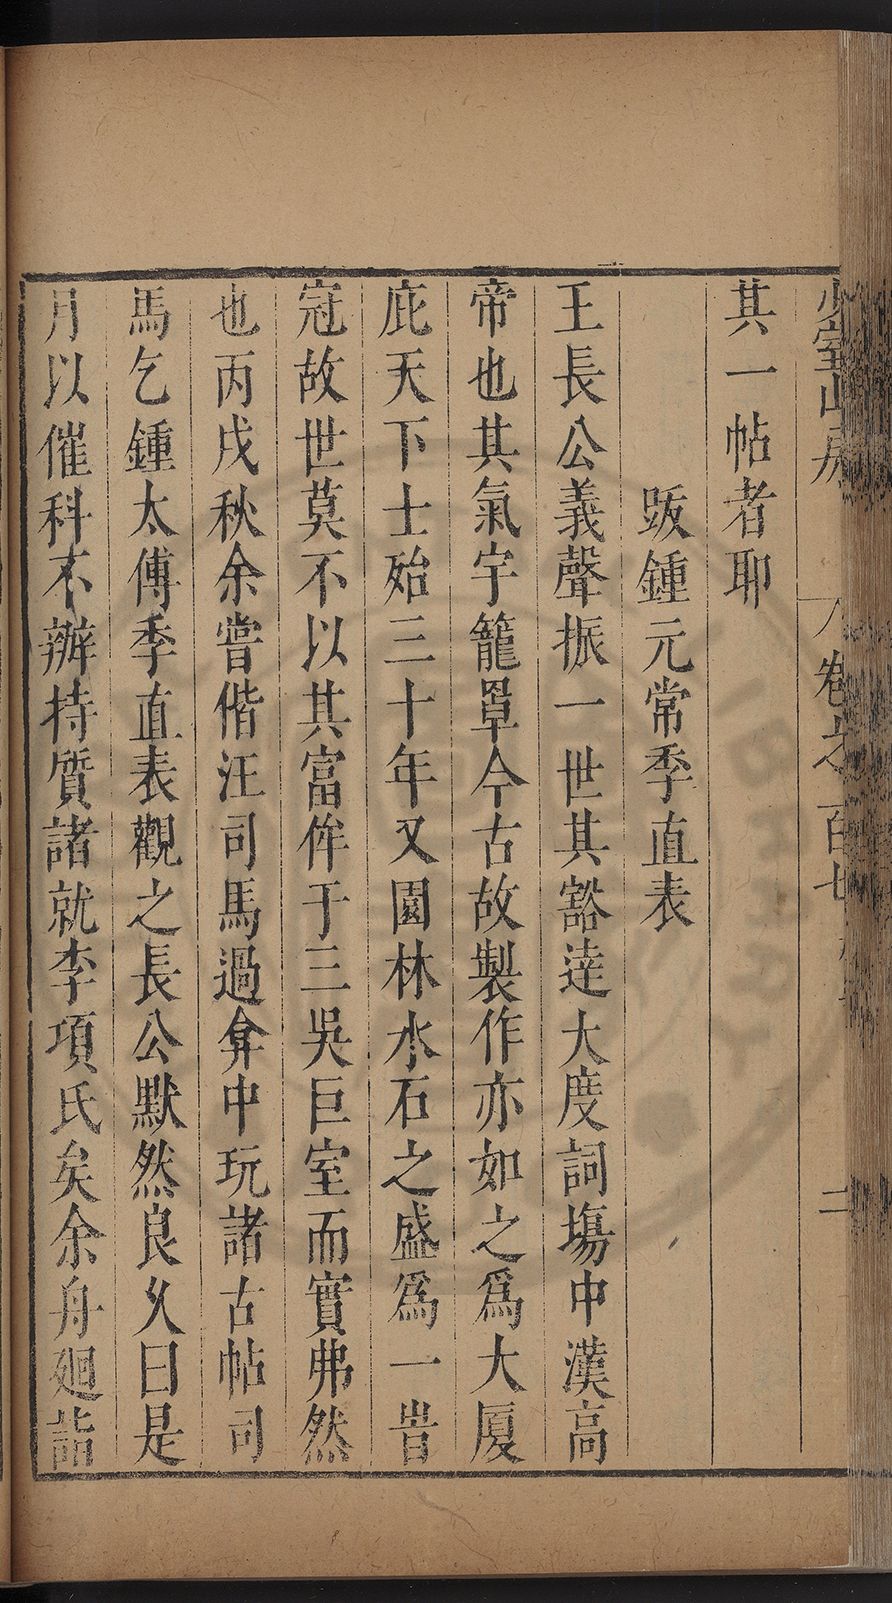 少室山房 卷之一百七 二
其一帖者耶
跋鍾元常季直表
王長公義聲振一世其豁達大度詞塲中漢高
帝也其氣宇籠罩今古故製作亦如之爲大厦
庇天下士殆三十年又園林水石之盛爲一旹
冠故世莫不以其富侔于三吳巨室而實弗然
也丙戌秋余嘗偕汪司馬過弇中玩諸古帖司
馬乞鍾太傅季直表觀之長公默然良乆曰是
月以催科不辦持質諸就李項氏矣余舟廻詣